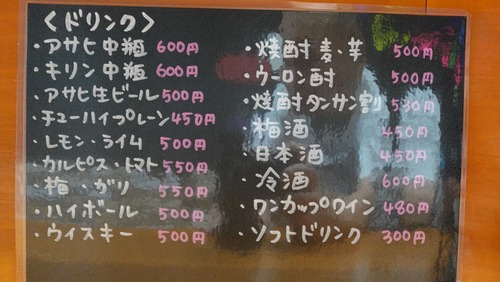 〈ドリンク〉
・アサヒ中瓶 600円
・キリン中瓶 600円
・アサヒ生ビール 500円
・チューハイプレーン 450円
・レモン・ライム 500円
・カルピス・トマト 550円
・梅・ガリ 550円
・ハイボール 500円
・ウイスキー 500円
・焼酎 麦、芋 500円
・ウーロン酎 500円
・焼酎タンサン割 530円
・梅酒 450円
・日本酒 450円
・冷酒 600円
・ワンカップワイン 480円
・ソフトドリンク 300円